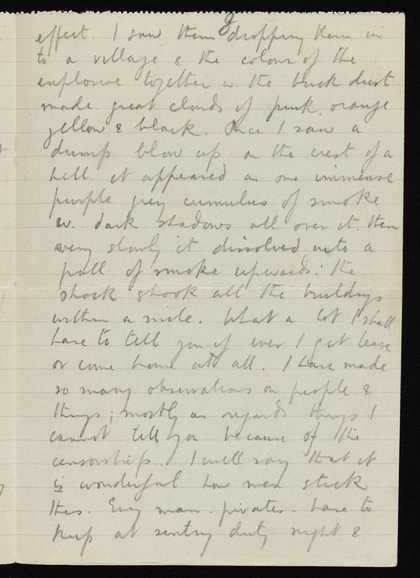 g
effect. I saw them dropping them in
to a village & the colour of the
explosive together w. the brick dust
made great clouds of pink, orange
yellow & black. Once I saw a
dump blow up on the crest of a
hill it appeared as one immense
purple grey cumulus of smoke
w. dark shadows all over it. then
very slowly it dissolved into a
pall of smoke upwards: the
shock shook all the buildings
within a mile. What a lot I shall
have to tell you if ever I get leave
or come home at all. I have made
so many observations on people &
things; mostly as regards things I
cannot tell you because of the
censorship. I will say that it
is wonderful how men stick
this. Every man - privates - have to
keep at sentry duty night &